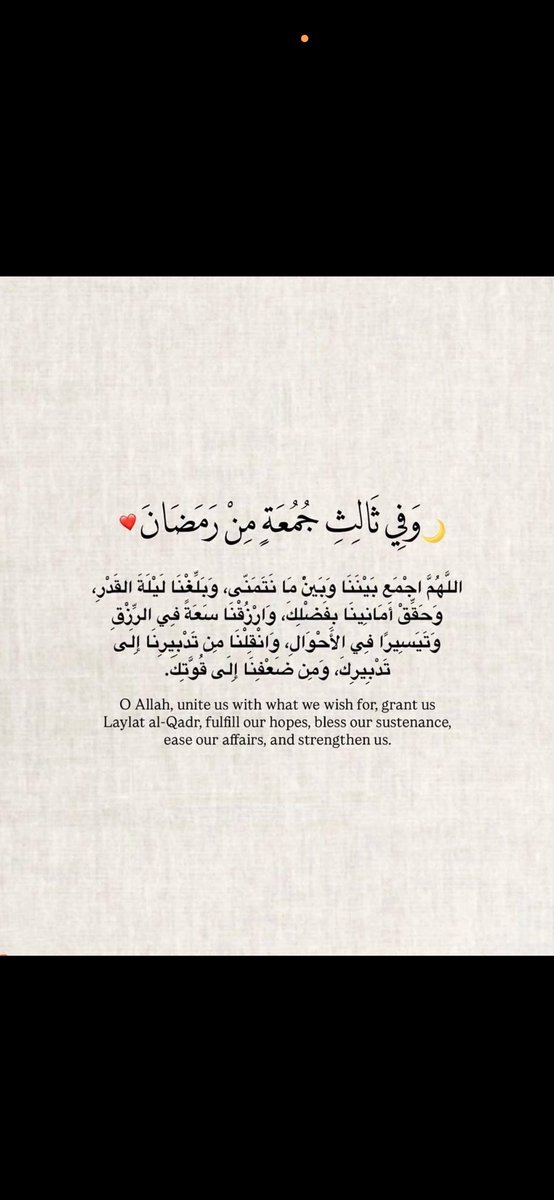 🌙وَفِي ثَالِثِ جُمُعَةٍ مِنْ رَمَضَانَ❤️
اللَّهُمَّ اجْمَع بَيْنَنَا وَبَيَنْ مَا نَتَمَنّى، وَبَلِّغْنَا لَيْلَةَ القَدْرِ،
وَحَقِّقْ أَمَانِينَا بِفَضْلِكَ، وَارْزُقْنَا سَعَةً فِي الرِّزْقِ
وَتَيَسِيرًا فِي الأَحْوَالِ، وَانْقِلْنَا مِن تَدْبِيرِنَا إِلَى
تَدْبِيرِكَ، وَمِن ضَعْفِنَا إِلَى قُوَّتِكَ.
O Allah, unite us with what we wish for, grant us
Laylat al-Qadr, fulfill our hopes, bless our sustenance,
ease our affairs, and strengthen us.